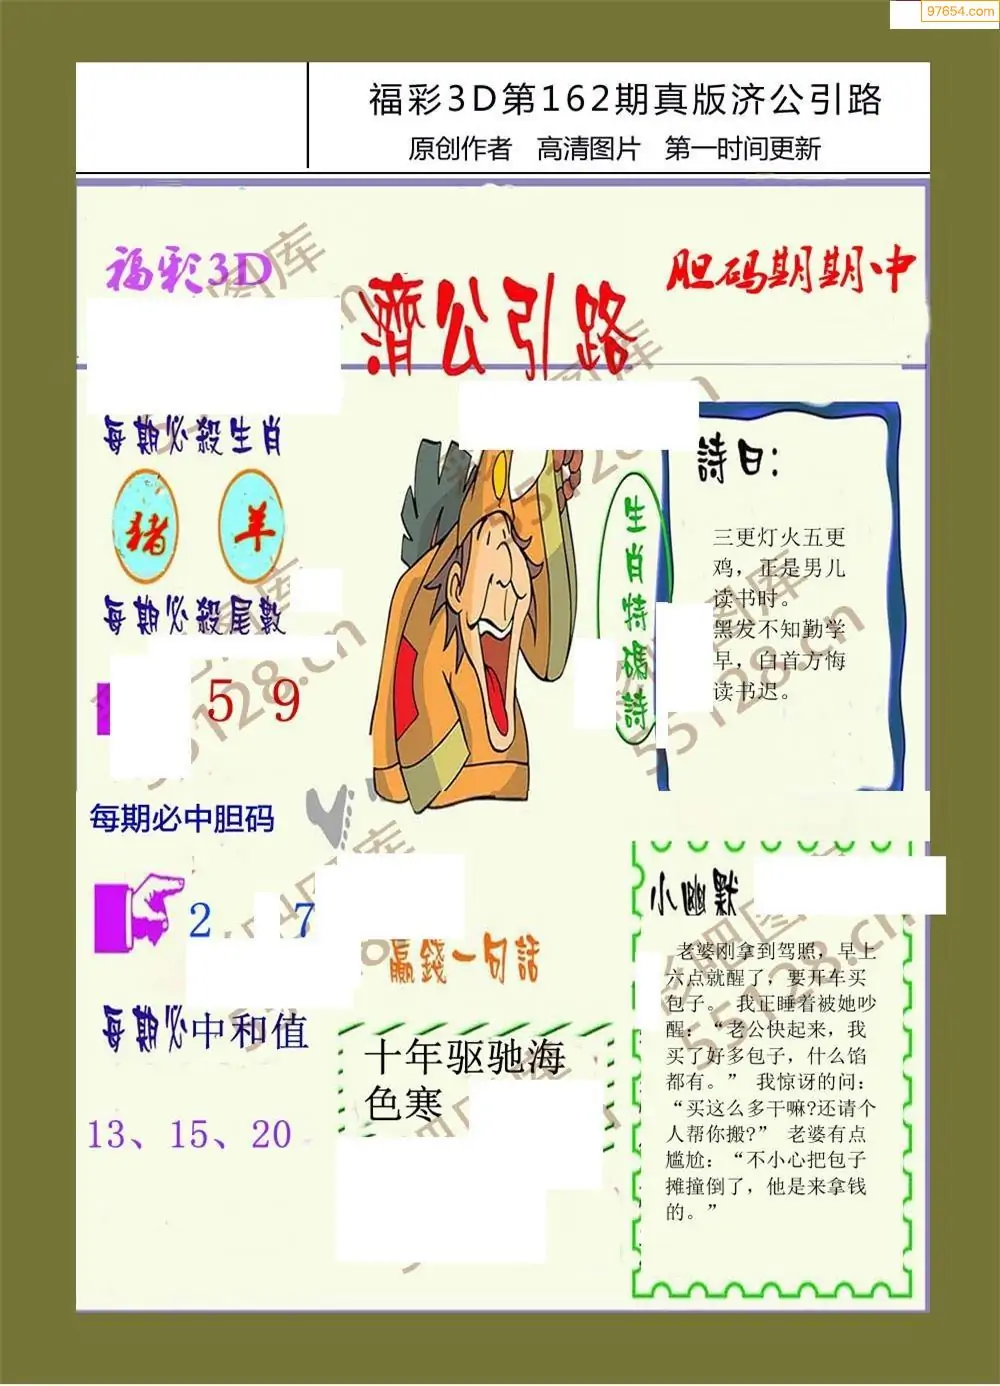 97654.com
福彩3D第162期真版济公引路
原创作者 高清图片 第一时间更新
福彩3D
濟公引路
胆码期期中
每期必殺生肖
猪 羊
每期必殺尾數
5 9
每期必中胆码
2 7
每期必中和值
13、15、20
生肖特碼詩
詩曰:
三更灯火五更
鸡，正是男儿
读书时。
黑发不知勤学
早，白首方悔
读书迟。
贏錢一句話
十年驱驰海
色寒
小幽默
老婆刚拿到驾照，早上
六点就醒了，要开车买
包子。 我正睡着被她吵
醒：“老公快起来，我
买了好多包子，什么馅
都有。” 我惊讶的问：
“买这么多干嘛?还请个
人帮你搬?” 老婆有点
尴尬：“不小心把包子
摊撞倒了，他是来拿钱
的。”
55128.cn
55128.cn
55128.cn